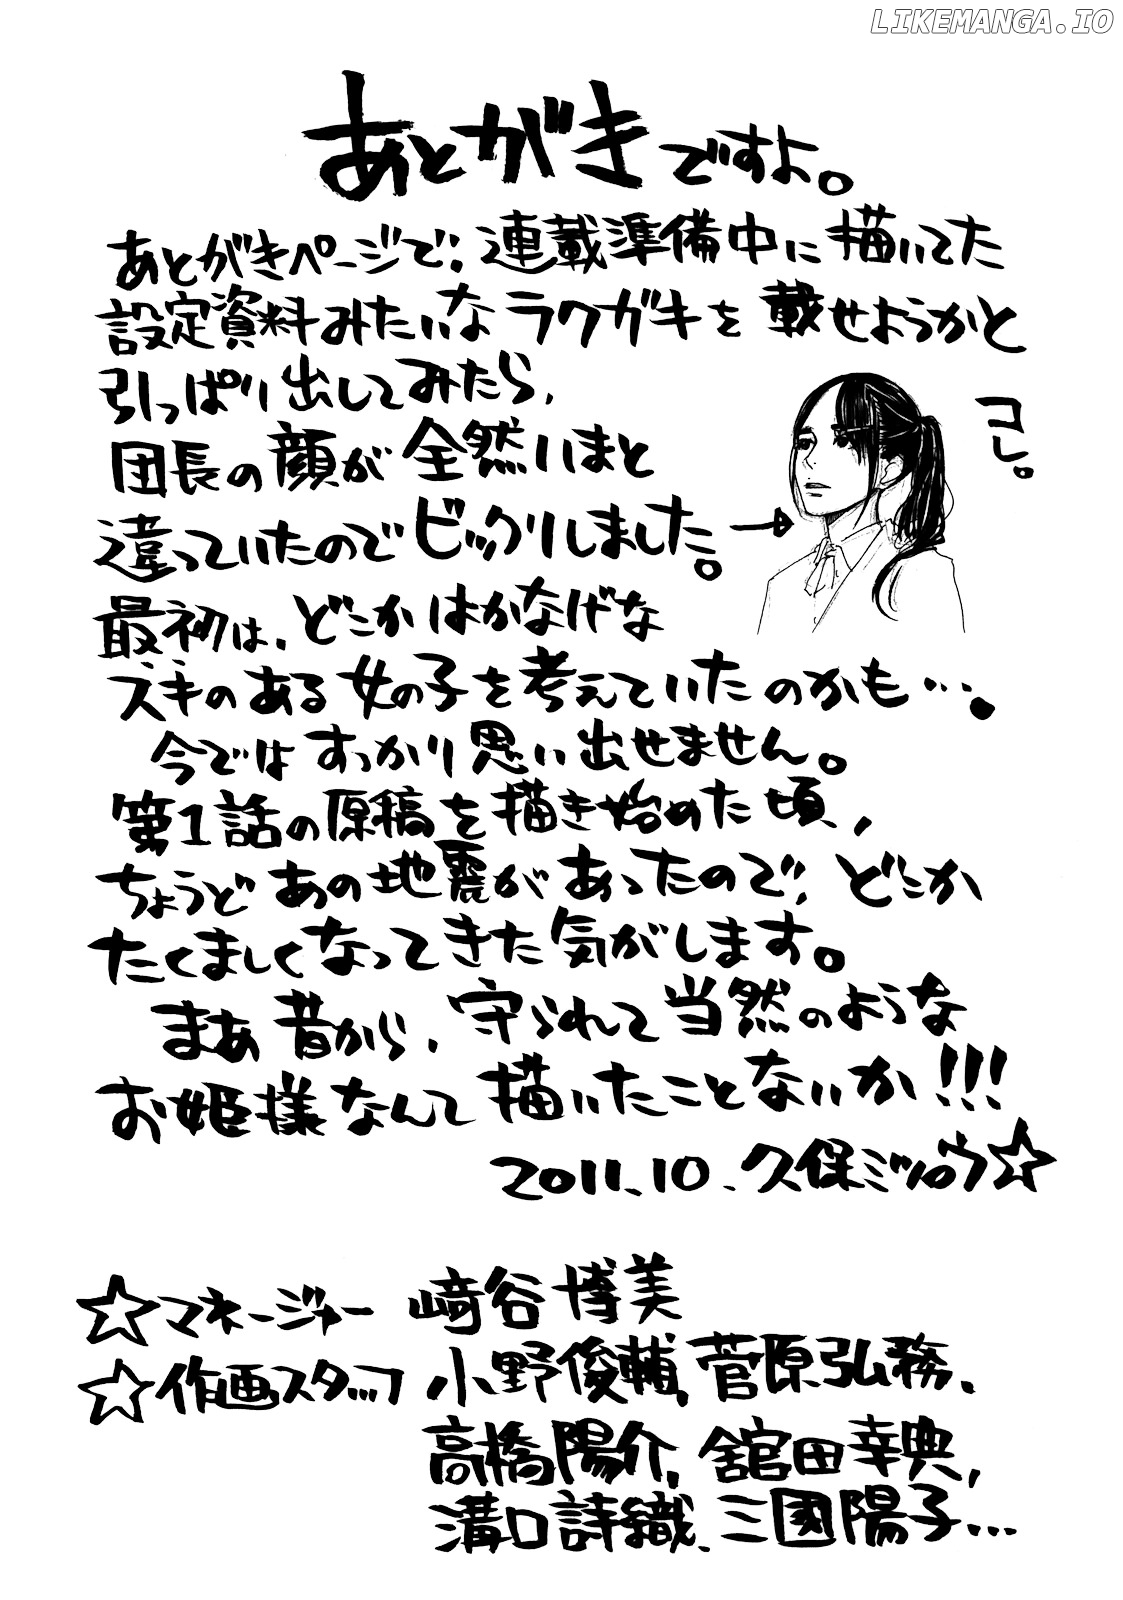 LIKEMANGA.IO
あとがきですよ。
あとがきページで、連載準備中に描いてた
設定資料みたいなラクガキを載せようかと
引っぱり出してみたら、
団長の顔が全然いまと
違っていたのでビックリしました。→
コレ。
最初は、どこかはかなげな
スキのある女の子を考えていたのかも…。
今ではすっかり思い出せません。
第1話の原稿を描き始めた頃、
ちょうどあの地震があったので、どこか
たくましくなってきた気がします。
まあ昔から、守られて当然のような
お姫様なんて描いたことないか!!!
2011.10.久保ミツロウ☆
☆マネージャー 﨑谷博美
☆作画スタッフ 小野俊輔、菅原弘務、
高橋陽介、舘田幸典、
溝口詩織、三國陽子…